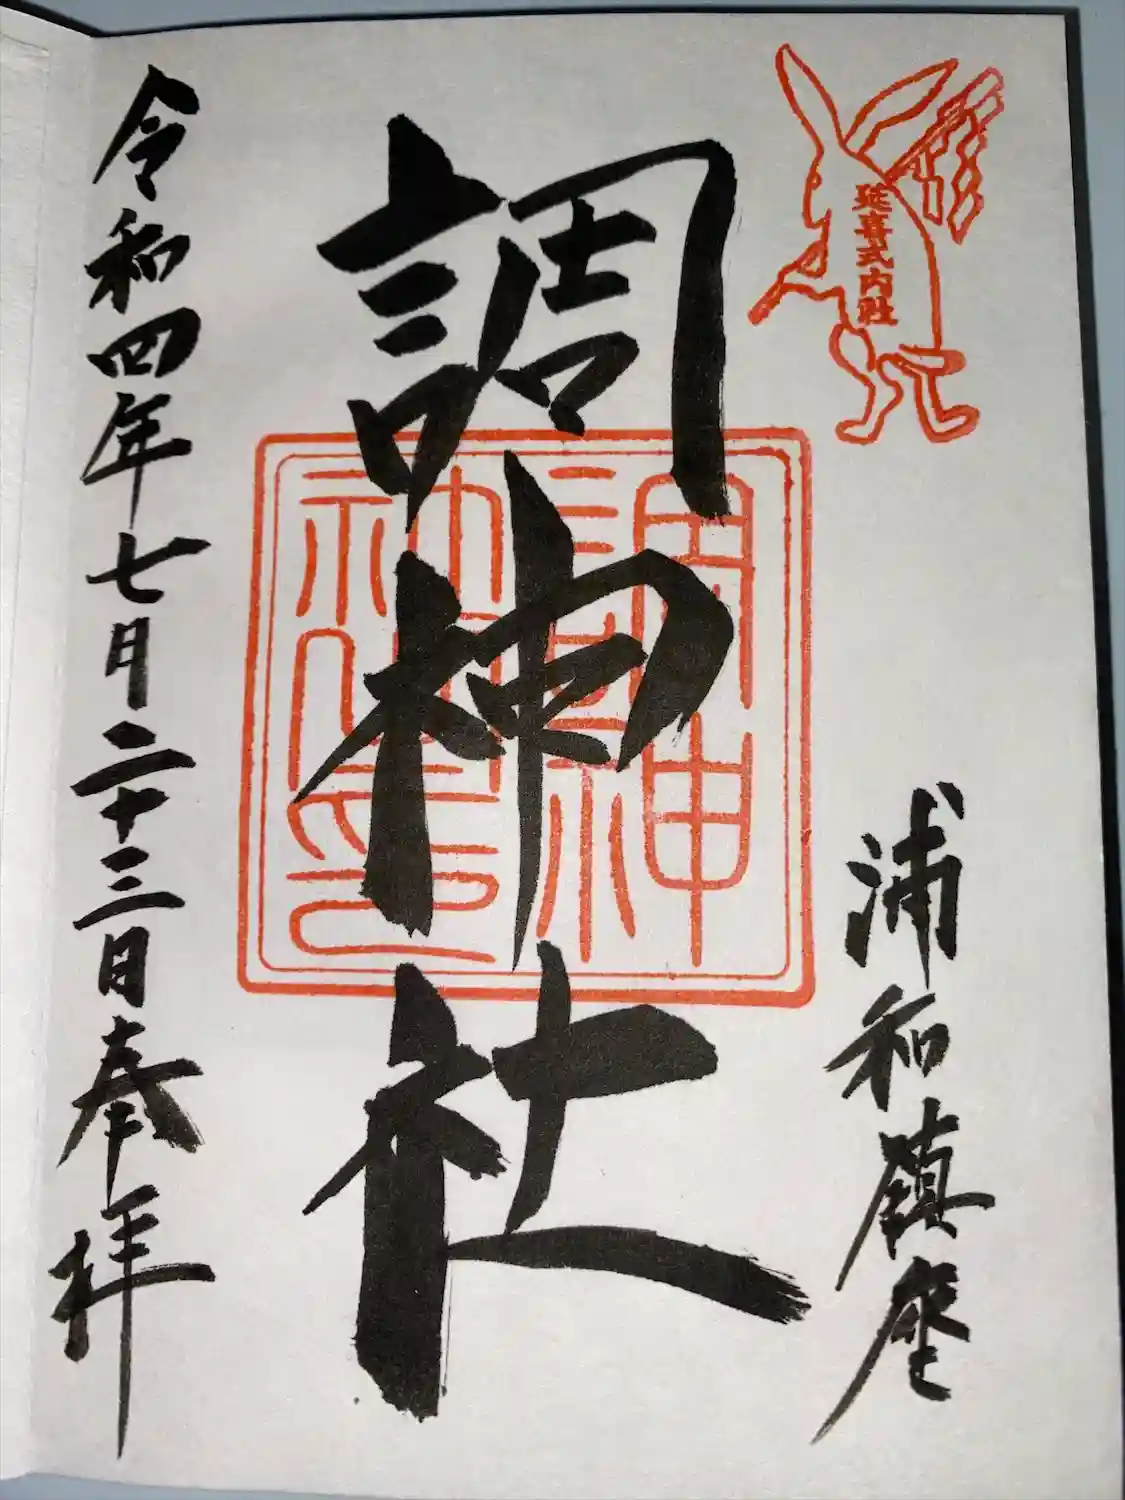 延喜式内社
浦和鎮座
調神社
調神社之印
令和四年七月二十三日奉拝